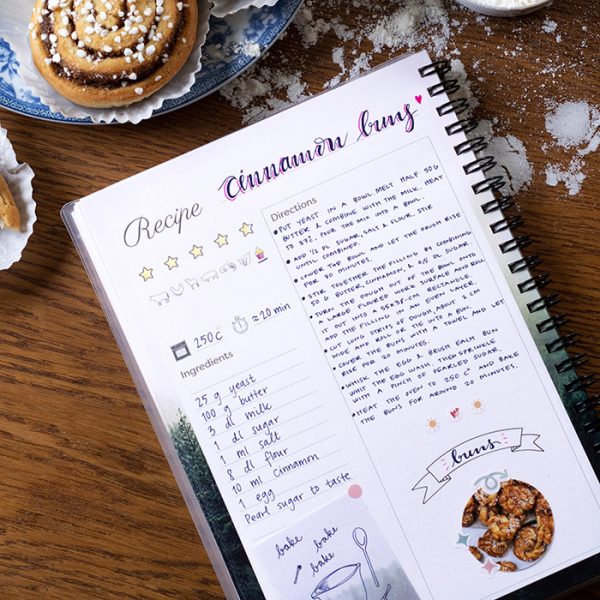 cinnamon buns
Recipe
250 C°
≈ 20 min
Ingredients
25 g yeast
100 g butter
3 dl milk
1 dl sugar
1 ml salt
8 dl flour
10 ml cinnamon
1 egg
Pearl sugar to taste
bake
bake
bake
Directions
• PUT YEAST IN A BOWL. MELT HALF 50G
BUTTER & COMBINE WITH THE MILK. HEAT
TO 37°. POUR THE MIX INTO A BOWL.
• ADD 1/2 DL SUGAR, SALT & FLOUR. STIR
UNTIL COMBINED.
• COVER THE BOWL AND LET THE DOUGH RISE
FOR 30 MINUTES.
• STIR TOGETHER THE FILLING BY COMBINING
50 G BUTTER, CINNAMON, & 0,5 DL SUGAR.
• TURN THE DOUGH OUT OF THE BOWL ONTO
A LARGE FLOURED WORK SURFACE AND ROLL
IT OUT INTO A 55X35-CM RECTANGLE.
ADD THE FILLING IN AN EVEN LAYER.
• CUT LONG STRIPS OF DOUGH, ABOUT 2 CM
WIDE AND ROLL OR TIE INTO A BUN.
• COVER THE BUNS WITH A TOWEL AND LET
RISE FOR 20 MINUTES.
• WHISK THE EGG & BRUSH EACH BUN
WHIT THE EGG WASH. THEN SPRINKLE
WITH A PINCH OF PEARLED SUGAR.
• HEAT THE OVEN TO 250 C° AND BAKE
THE BUNS FOR AROUND 20 MINUTES.
buns